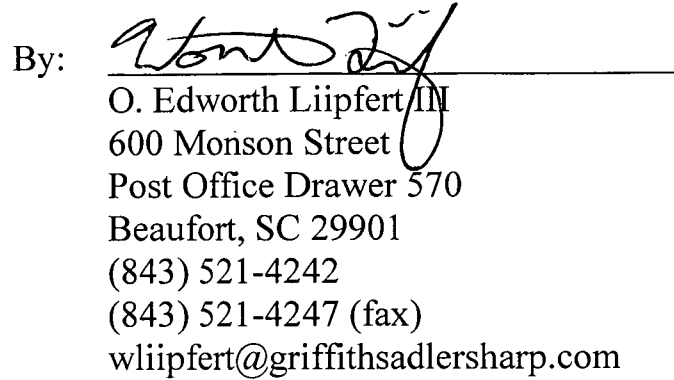 By:
O. Edworth Liipfert III
600 Monson Street
Post Office Drawer 570
Beaufort, SC 29901
(843) 521-4242
(843) 521-4247 (fax)
wliipfert@griffithsadlersharp.com